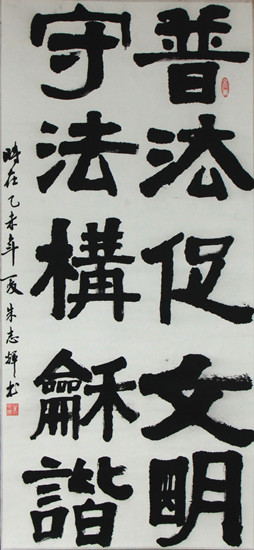 普法促文明
守法構龢諧
時在乙未年夏朱志輝書